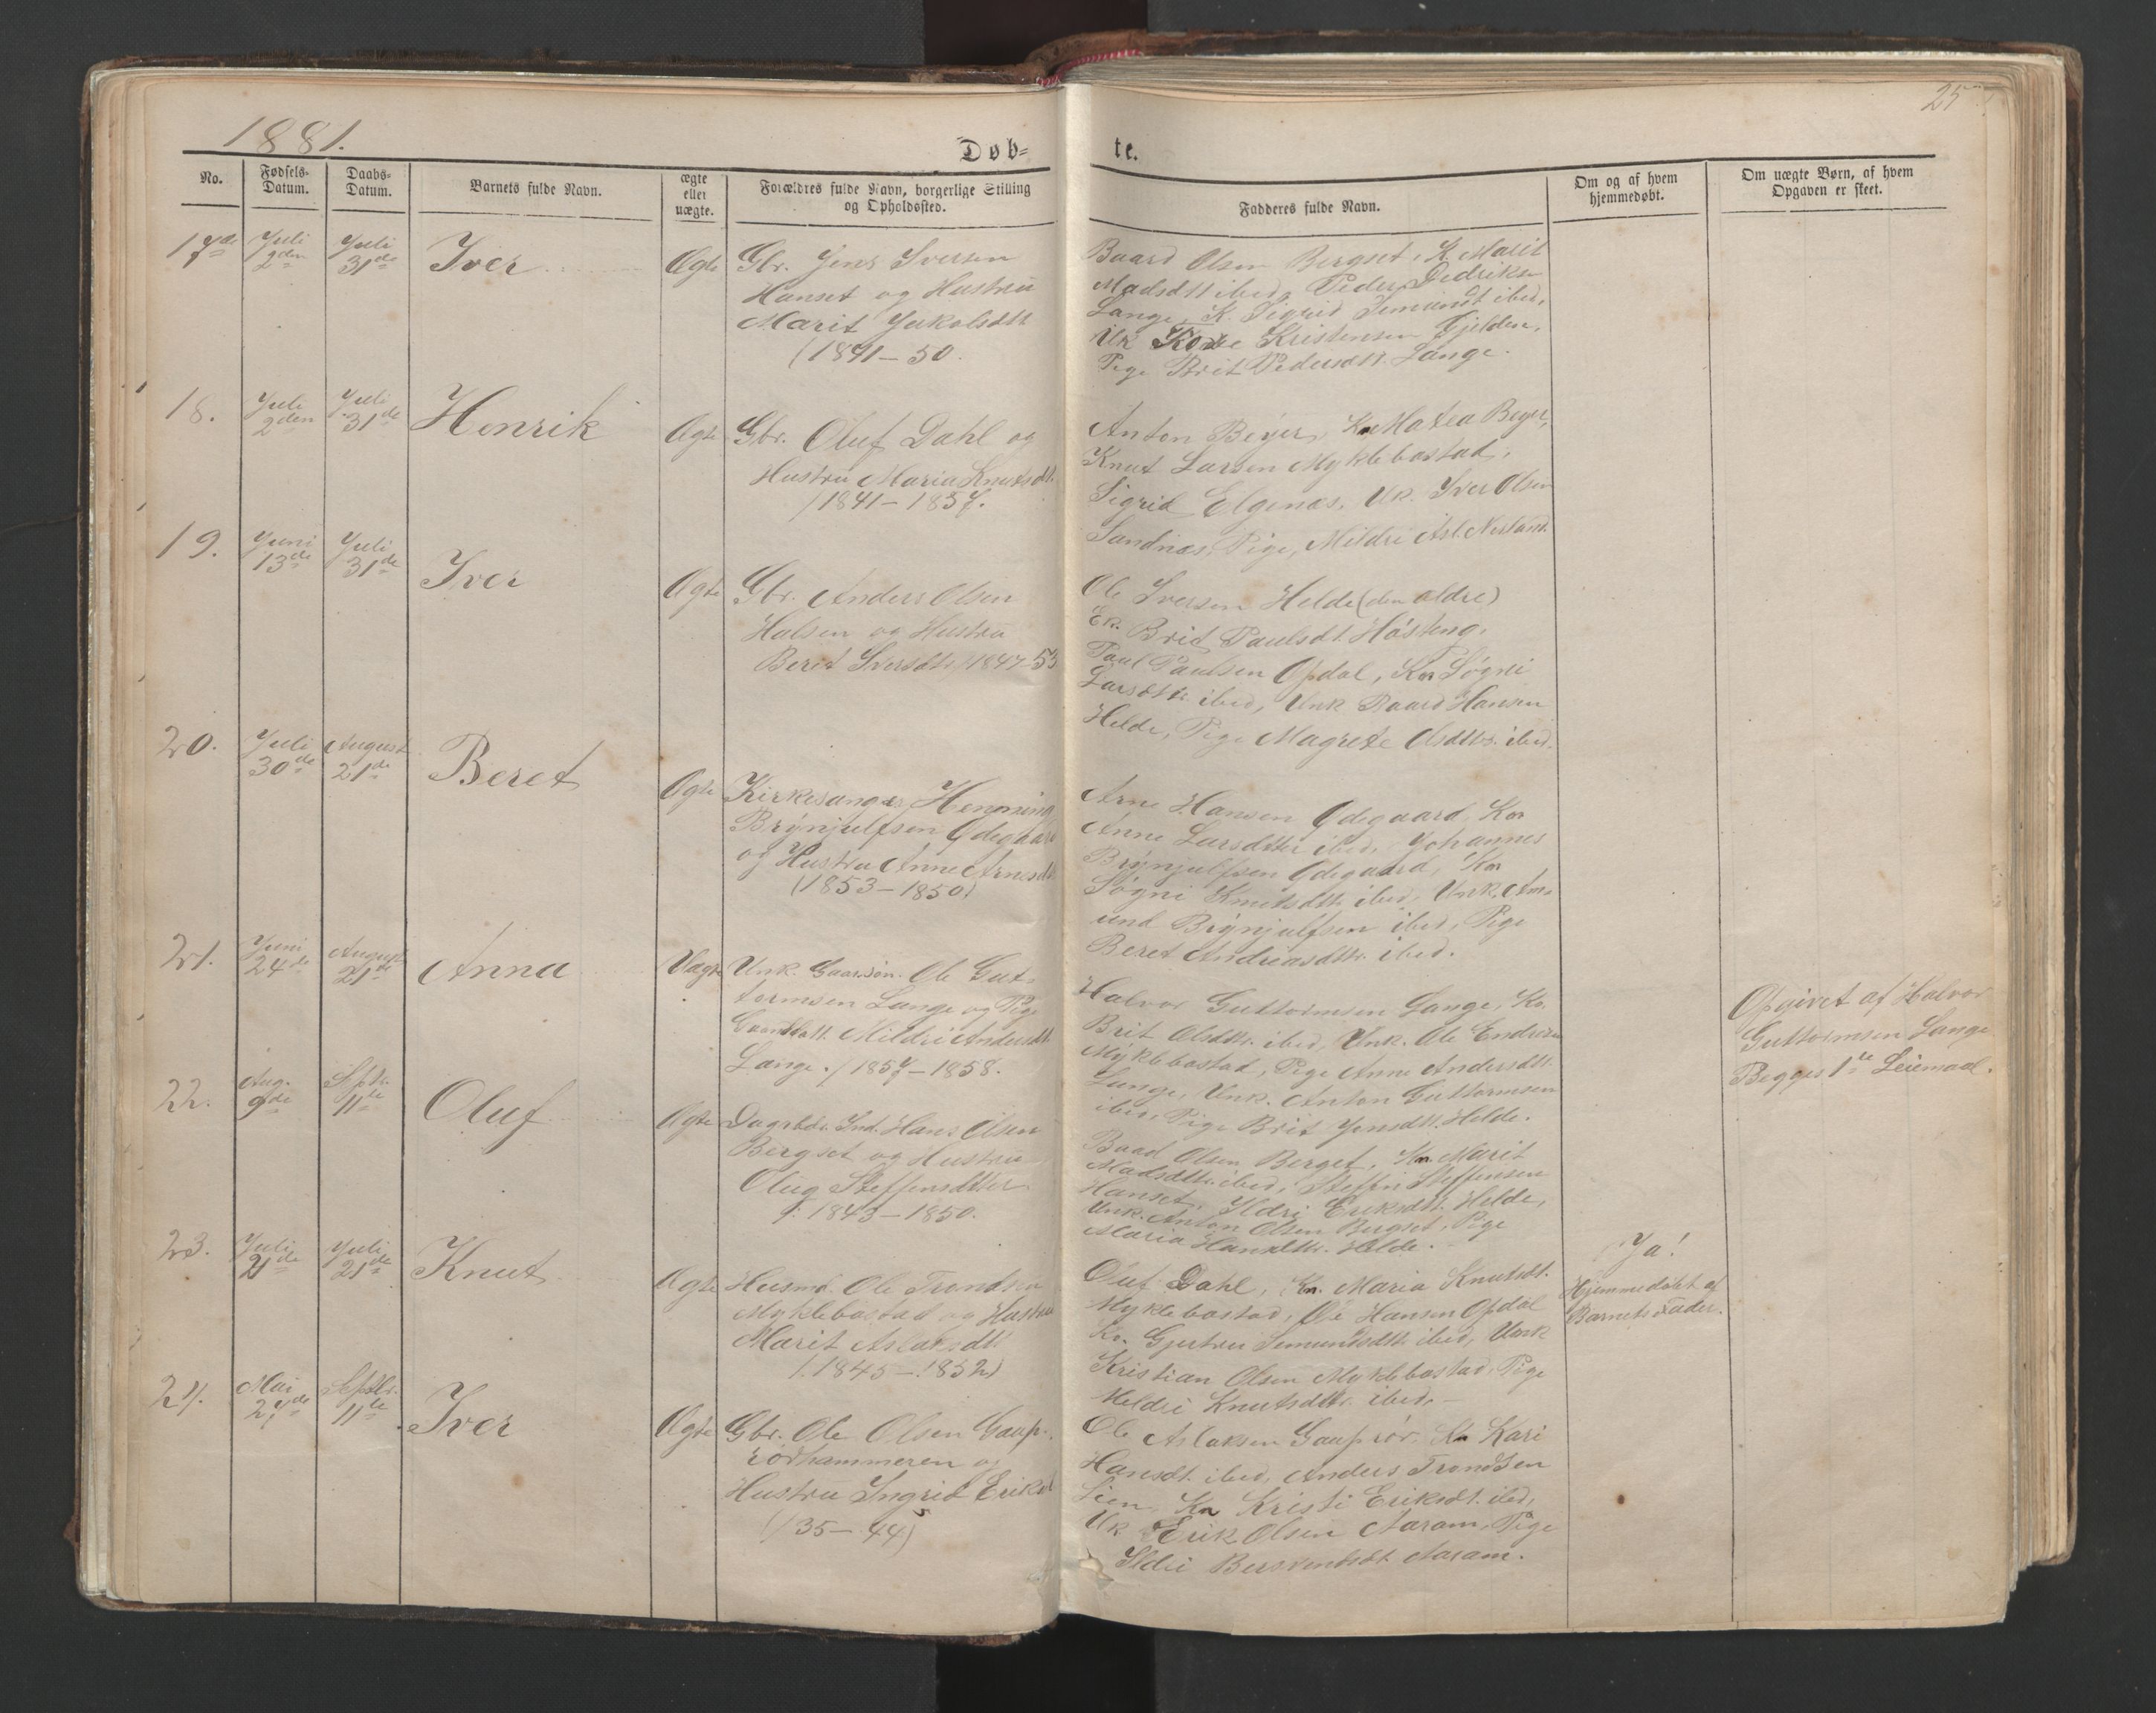 1881.
25
Døb=
te.
No.
Fødsels-
Datum.
Daabs-
Datum.
Barnets fulde Navn.
ægte
eller
uægte.
Forældres fulde Navn, borgerlige Stilling
og Opholdssted.
Fadderes fulde Navn.
Om og af hvem
hjemmedøbt.
Om uægte Børn, af hvem
Opgaven er skeet.
17de
Juli
2den
Juli
31de
Iver
Ægte
Gbr. Jens Iversen
Hanset og Hustru
Marit Jakobsdtt
(1841-50.
Baard Olsen Bergset, K. Marit
Madsdtt ibed, Peder Dedriksen
Lange, K. Sigrid Semundt ibed,
Uk Kristensen Gjelden,
Pige Brit Pedersdtt. Lange.
18.
Juli
2den
Juli
31de
Henrik
Ægte
Gbr. Oluf Dahl og
Hustru Maria Knutsdt.
(1841-1857.
Anton Beyer, Kn Matea Beyer,
Knut Larsen Myklebostad,
Sigrid Elgenæs, Uk. Iver Olsen
Sandnæs, Pige, Mildri Asl. Nesland.
19.
Juni
13de
Juli
31de
Iver
Ægte
Gbr. Anders Olsen
Halsen og Hustru
Berit Iversdtt. (1847-53
Ole Iversen Helde (den ældre)
Ek. Brit Paulsdt. Høsteng.
Paul Paulsen Opdal, Kn Søgni
Larsdtt. ibed, Unk Baard Hansen
Helde, Pige Magrete Olsdttr. ibed.
20.
Juli
30de
August
21de
Beret
Ægte
Kirkesanger Henning
Brynjulfsen Ødegaard
og Hustru Anne Arnesdt
(1853-1850)
Arne Hansen Ødegaard, Kon
Anne Larsdtter ibed, Johannes
Brynjulfsen Ødegaard, Kn
Søgni Knutsdtt. ibed, Unk. Am-
und Brynjulfsen ibed, Pige
Beret Andreasdttr. ibed.
21.
Juni
24de
August
21de
Anna
Uægte
Unk. Gaardsøn. Ole Gut-
tormsen Lange og Pige
Mildri Andersdt.
Lange. (1857-1858.
Halvor Guttormsen Lange, Ko.
Brit Olsdttr. ibed, Unk. Ole Endresen
Myklebostad, Pige Anne Andersdtt.
Lange, Unk. Anton Guttormsen
ibed, Pige Brit Jensdtt. Helde.
Opgivet af Halvor
Guttormsen Lange
Begges 1te Leiermaal.
22.
Aug.
9de
Septr.
11te
Oluf
Ægte
Dagarbdr. Ind. Hans Olsen
Bergset og Hustru
Olug Steffensdtter
1843-1850.
Baad Olsen Berget, Kn. Marit
Madsdttr. ibed, Steffen Steffensen
Hanset, Ildri Eriksdtt. Helde,
Unk. Anton Olsen Bergset, Pige
Maria Hansdttr. Helde.
23.
Juli
21de
Juli
21de
Knut
Ægte
Husmd. Ole Trondsen
Myklebostad og Hustru
Marit Aslaksdtt
(1845-1852)
Oluf Dahl, Kn. Maria Knutsdt.
Myklebostad, Ole Hansen Opdal
Ko. Gjertru Semundsdtt. ibed, Unk
Kristian Olsen Myklebostad, Pige
Meldri Knutsdttr. ibed.
Ja!
Hjemmedøbt af
Barnets Fader.
24.
Mai
27de
Septbr.
11te
Iver
Ægte
Gbr. Ole Olsen Gaup-
rørhammeren og
Hustru Ingrid Eriksd
(/35-44)
Ole Aslaksen Gauprør, Kn Kari
Hansdt. ibed, Anders Trondsen
Lien, Kn Kristi Eriksdt. ibed,
Uk Erik Olsen Aaram, Pige
Ildri Aaram.